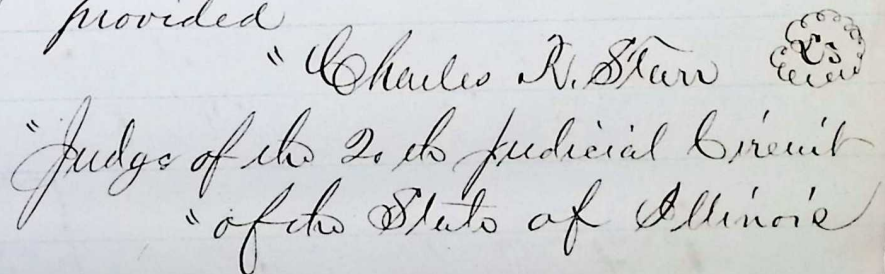 provided
" Charles R. Starr LS
" Judge of the 20th Judicial Circuit
" of the State of Illinois